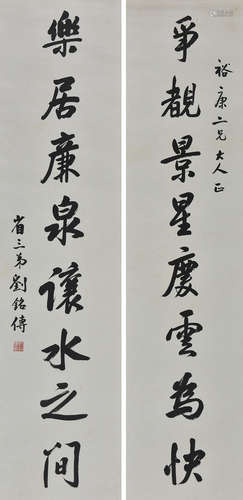 裕康二兄大人正
爭覩景星慶雲為快
樂居廉泉讓水之间
省三弟劉銘傳